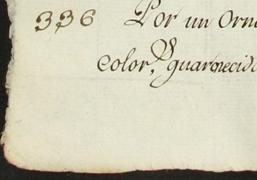 336 Por un Orna
color, guarnecido